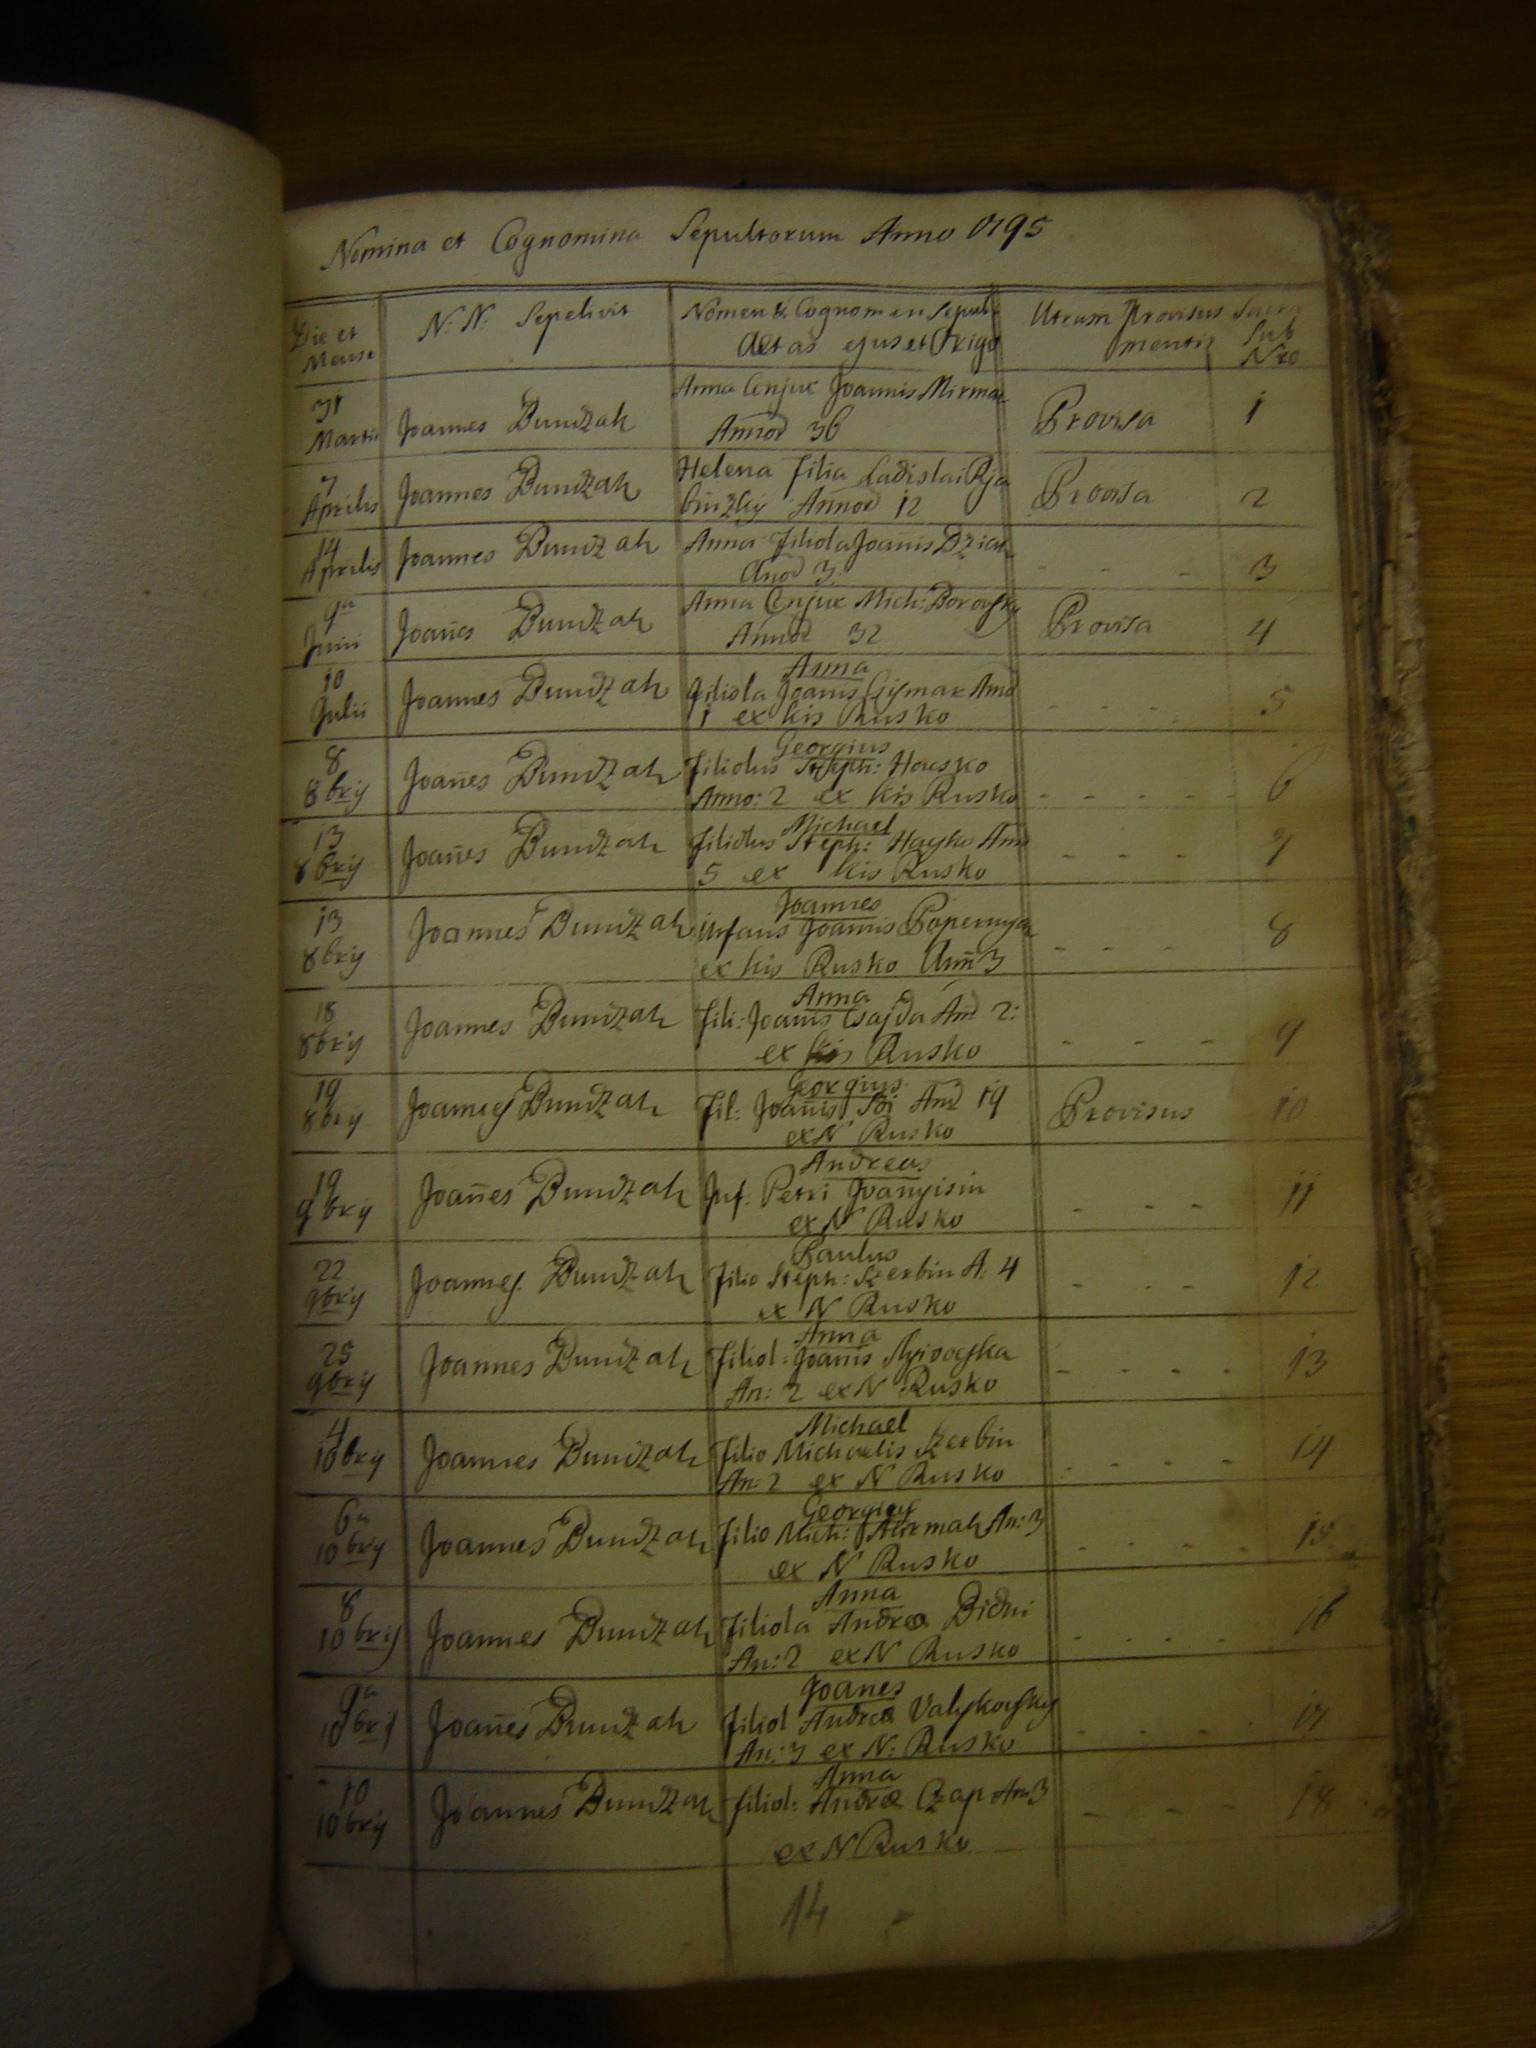 Nomina et Cognomina Sepultorum Anno 1795
Die et Mense
N: N: Sepelivit
Nomen & Cognomen Sepul:
Aetas ejus et Origo
Utrum Provisus Sacra
mentis
Sub
Nro
31 Martii Joannes Bundzak Anna Conjux Joannis
Annor 36 Provisa 1
7 Aprilis Joannes Bundzak Helena filia Ladislai Rja
binzkij Annor 12 Provisa 2
14 Aprilis Joannes Bundzak Anna filiola Joanis
Anor 3 - - - 3
9a Junii Joañes Bundzak Anna Conjux Mich: Borovsky
Annor 32 Provisa 4
10 Julii Joannes Bundzak Anna
filiola Joanis Anno
1 ex kis Rusko - - - - 5
8 8brij Joañes Bundzak Georgius
filiolus Steph: Hausko
Anno: 2 ex kis Rusko - - - - - 6
13 8brij Joañes Bundzak Michael
filiolus Steph: Hayko Ann
5 ex kis Rusko - - - 7
13 8brij Joannes Bundzak Joannes
infans Joannis
ex kis Rusko Ann 3 - - - 8
18 8brij Joannes Bundzak Anna
fili: Joanis Csajda An 2:
ex kis Rusko - - - 9
19 8brij Joannes Bundzak Georgius
fil: Joañis An 19
ex N Rusko Provisus 10
19 9brij Joañes Bundzak Andreas
Inf. Petri Ivanyisin
ex N Rusko - - - 11
22 9brij Joannes Bundzak Paulus
filio Steph: Szerbin A: 4
ex N Rusko - - - 12
25 9brij Joannes Bundzak Anna
filiol: Joanis
An: 2 ex N Rusko - - - - 13
4 10brij Joannes Bundzak Michael
filio Michaelis Szerbin
An: 2 ex N Rusko - - - - 14
6a 10brij Joannes Bundzak Georgius
filio Mich: An: 3
ex N Rusko - - - - 15
8 10brij Joannes Bundzak Anna
filiola Andrea Bidni
An: 2 ex N Rusko - - - - 16
9a 10brij Joañes Bundzak Joanes
filiol Andrea Valykovsky
An: 3 ex N: Rusko - - - - 17
10 10brij Joannes Bundzak Anna
filiol: Andrea Czap An 3
ex N Rusko - - - - 18
14